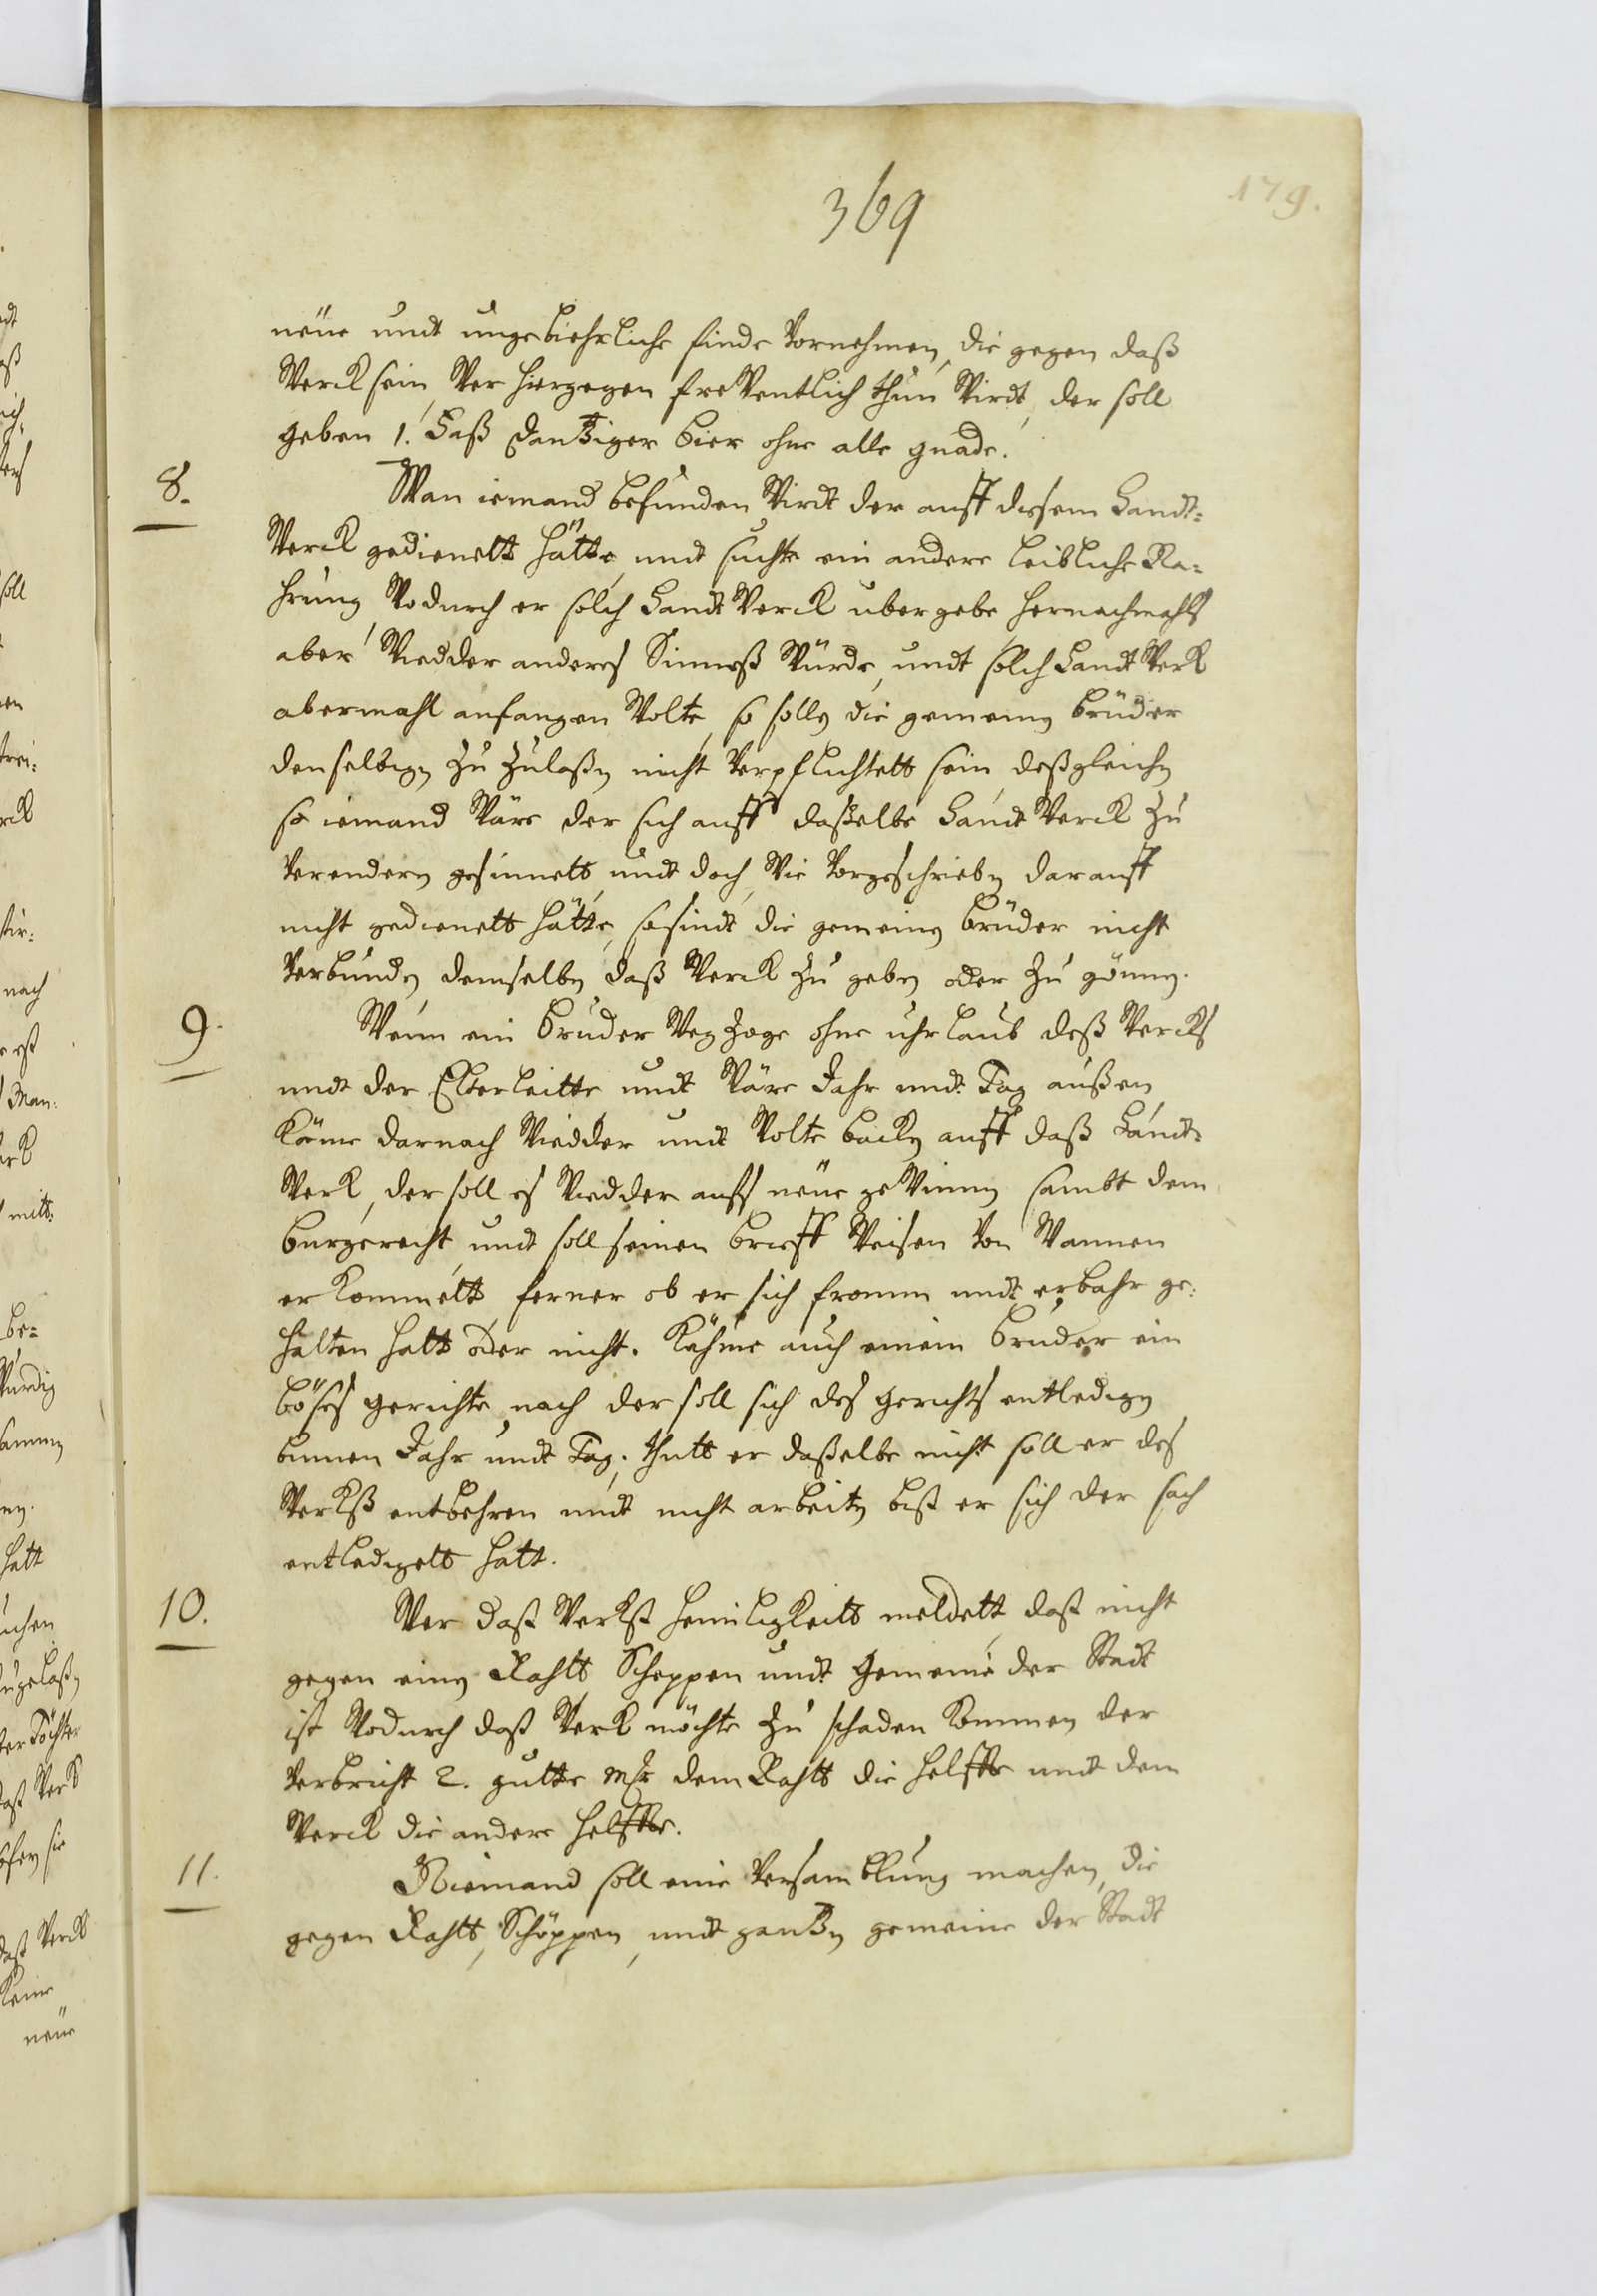 369
179.
neüe undt ungebiehrliche finde vornehmen, die gegen daß
Werck sein, Wer hiergegen freventlich thun Wirdt, der soll
geben 1. Faß Dantziger Bier ohne alle gnade.
8. Wan iemand befunden Wirdt der auff diesem Handt=
Werck gedienett hätte, undt suchte ein andere leibliche Na=
hrung Wodurch er solch Handt Werck ubergebe hernachmahls
aber Wiedder anderes Sinneß Würde, undt solch Handt Werk
abermahl anfangen Wolte, so sollen die gemeinen Brüder
denselbigen zu zulaßen nicht Verpflichtett sein, deßgleichen
so iemand Wäre der sich auff daßelbe Handt Werck zu
Verendern gesinnett, undt doch, Wie Vorgeschrieben, darauff
nicht gedienett hätte, so sindt die gemeinen Brüder nicht
Verbunden demselben daß Werck zu geben oder zu gönnen.
9. Wenn ein Bruder Weg zoge ohne uhrlaub deß Wercks
undt der Elterleütte undt Wäre Jahr undt Tag außen,
käme darnach Wiedder undt Wolte backen auff daß Handt=
Werk, der soll es Wiedder auffs neüe geWinnen sambt dem
Burgerecht, undt soll seinen brieff Weisen Von Wannen
er kommett, ferner ob er sich fromm undt erbahr ge=
halten hatt oder nicht. Kähme auch einem Bruder ein
böses gerichte nach, der soll sich des gerichts entledigen
binnen Jahr undt Tag, thutt er daßelbe nicht soll er des
Werkß entbehren undt nicht arbeiten biß er sich der sach
entledigett hatt.
10. Wer daß Werkß heimligkeitt meldett, daß nicht
gegen einen Rahtt, Scheppen undt Gemeine der Stadt
ist Wodurch daß Werk möchte zu schaden kommen der
Verbricht 2. gutte Mk dem Rahtt die helffte undt dem
Werck die andere helffte.
11. Niemand soll eine Versamblung machen, die
gegen Rahtt, Schöppen, undt gantzen gemeine der Stadt